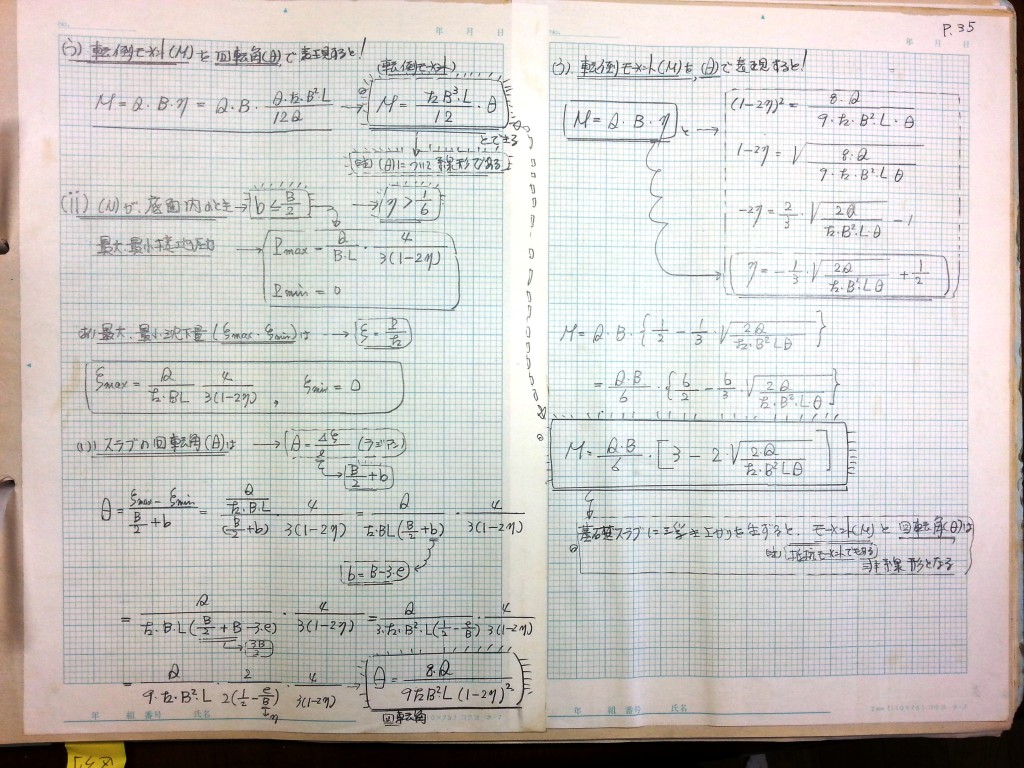 P.35
年 月 日
う) 転倒モーメント(M)を 回転角(θ)で表現すると!
(転倒モーメント)
M = Q・B・η = Q・B・\frac{θ・k・B²・L}{12Q} → M = \frac{kB³・L}{12}・θ
とできる
(θ)について線形である
(ii) (N)が、底面内のとき → b ≤ \frac{B}{2} → η > \frac{1}{6}
最大・最小接地圧力 → P_{max} = \frac{Q}{B・L}・\frac{4}{3(1-2η)}
P_{min} = 0
あ) 最大・最小沈下量 (ξ_{max}・ξ_{min})は → ξ = \frac{P}{k}
ξ_{max} = \frac{Q}{k・BL} \frac{4}{3(1-2η)} , ξ_{min} = 0
い) スラブの回転角(θ)は → θ = \frac{Δξ}{ℓ} (ラジアン)
\frac{B}{2}+b
θ = \frac{ξ_{max} - ξ_{min}}{\frac{B}{2}+b} = \frac{\frac{Q}{k・B・L}}{(\frac{B}{2}+b)}・\frac{4}{3(1-2η)} = \frac{Q}{k・BL(\frac{B}{2}+b)}・\frac{4}{3(1-2η)}
b = B-3・e
= \frac{Q}{k・B・L(\frac{B}{2}+B-3・e)}・\frac{4}{3(1-2η)} = \frac{Q}{3・k・B²・L(\frac{1}{2}-\frac{e}{B})}・\frac{4}{3(1-2η)}
\frac{3B}{2}
= \frac{Q}{9・k・B²・L}・\frac{2}{2(\frac{1}{2}-\frac{e}{B})}・\frac{4}{3(1-2η)} → θ = \frac{8・Q}{9kB²L(1-2η)²}
η
回転角
年 組 番号 氏名
年 月 日
う). 転倒モーメント(M)を,(θ)で表現すると!
M = Q・B・η と →
(1-2η)² = \frac{8・Q}{9・k・B²・L・θ}
1-2η = √\frac{8・Q}{9・k・B²・Lθ}
-2η = \frac{2}{3}・√\frac{2Q}{k・B²・L・θ} -1
η = -\frac{1}{3}・√\frac{2Q}{k・B²・Lθ} + \frac{1}{2}
M = Q・B・{\frac{1}{2} - \frac{1}{3}・√\frac{2Q}{k・B²・Lθ}}
= \frac{Q・B}{6}・{\frac{6}{2} - \frac{6}{3}・√\frac{2Q}{k・B²・Lθ}}
M = \frac{Q・B}{6}・[3 - 2・√\frac{2・Q}{k・B²Lθ}]
基礎スラブに浮き上がりを生ずると、モーメント(M)と回転角(θ)は
抵抗モーメントである
非線形となる
年 組 番号 氏名